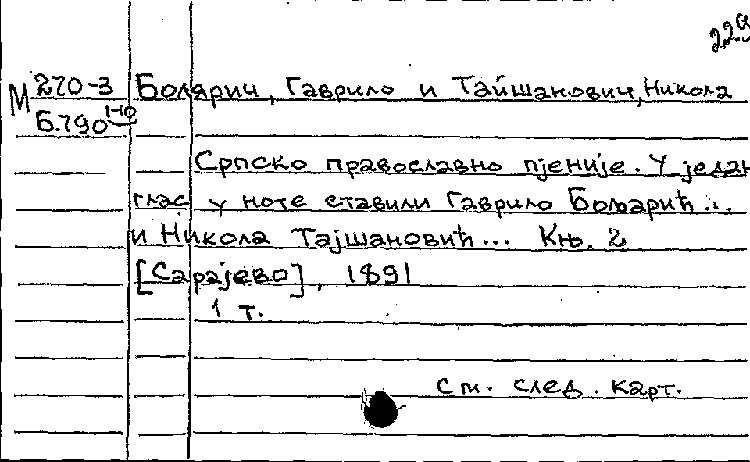 220
М 270-3
Б.790 1-10
Болярич, Гаврило и Тайшанович, Никола
Српско православно пјеније. У један
глас у ноте ставили Гаврило Бољарић...
и Никола Тајшановић... Књ. 2
[Сарајево], 1891
1 т.
См. след. карт.